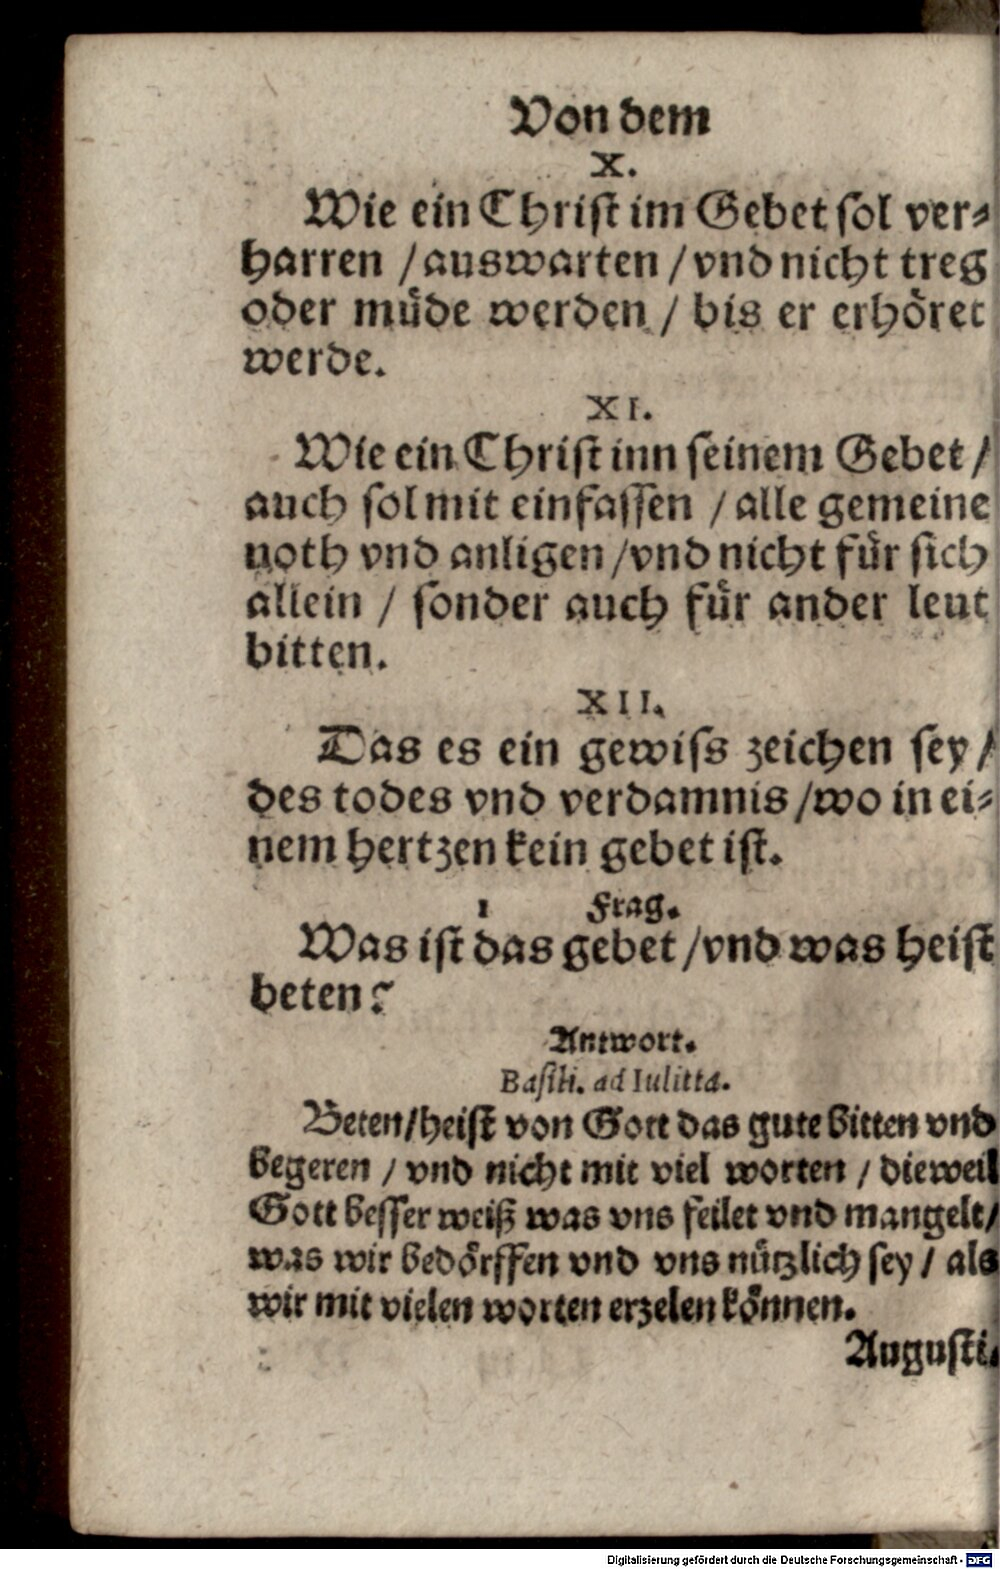 Von dem
X.
Wie ein Chriſt im Gebet ſol ver⸗
harren / auswarten / vnd nicht treg
oder müde werden / bis er erhöret
werde.
XI.
Wie ein Chriſt inn ſeinem Gebet /
auch ſol mit einfaſſen / alle gemeine
noth vnd anligen / vnd nicht für ſich
allein / ſonder auch für ander leut
bitten.
XII.
Das es ein gewiſs zeichen ſey /
des todes vnd verdamnis / wo in ei⸗
nem hertzen kein gebet iſt.
1 Frag.
Was iſt das gebet / vnd was heiſt
beten?
Antwort.
Baſili. ad Iulitta.
Beten / heiſt von Gott das gute bitten vnd
begeren / vnd nicht mit viel worten / dieweil
Gott beſſer weiß was vns feilet vnd mangelt /
was wir bedörffen vnd vns nützlich ſey / als
wir mit vielen worten erzelen können.
Auguſti.
Digitalisierung gefördert durch die Deutsche Forschungsgemeinschaft - DFG